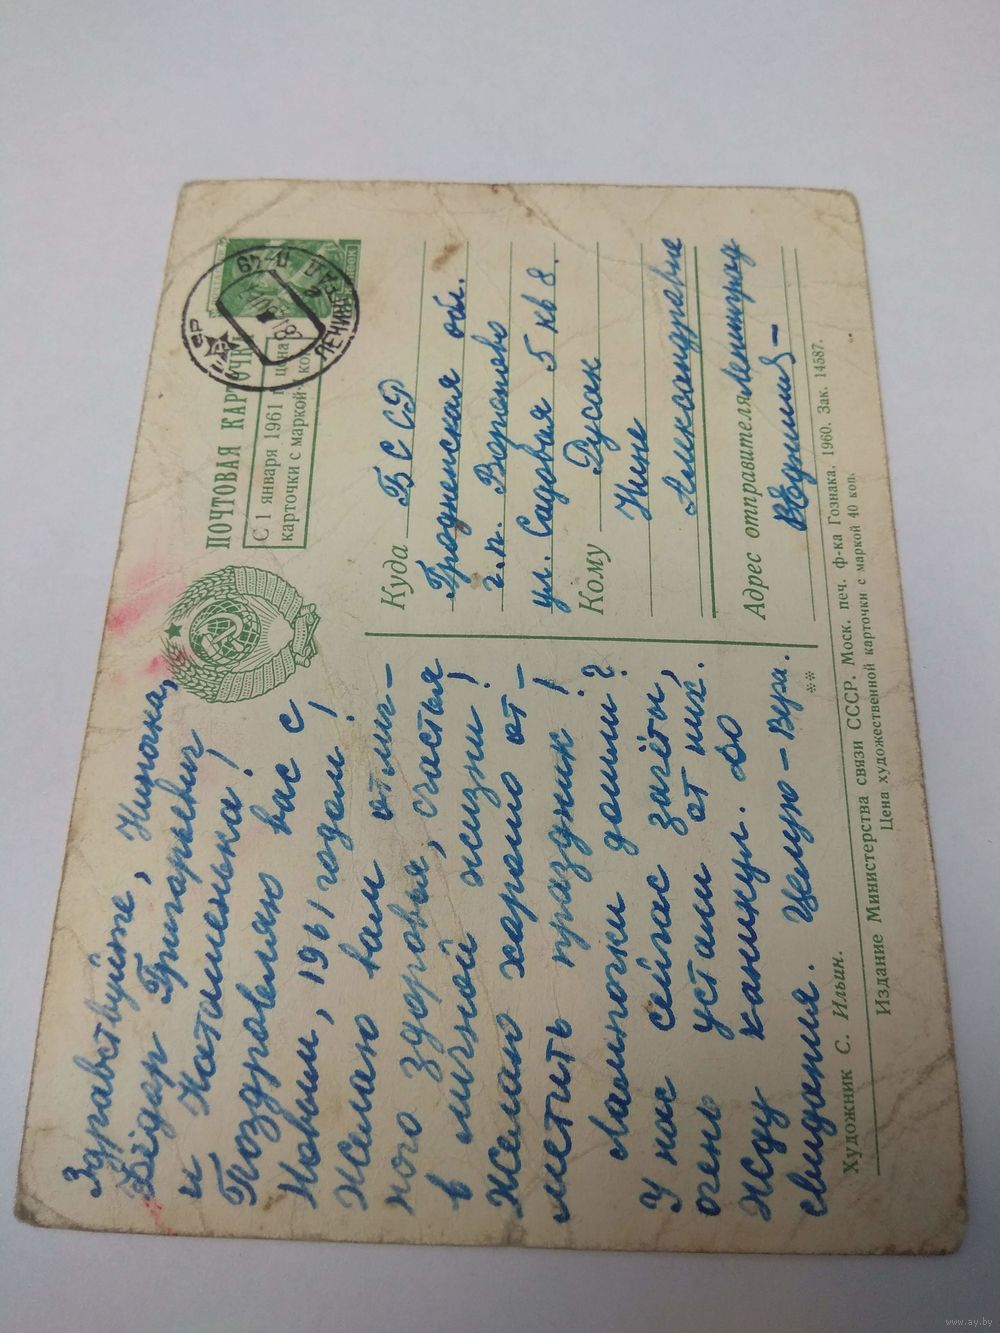 Здравствуйте, Ниночка,
Фёдар Григорьевич
и Наташенька!
Поздравляю вас с
Новым, 1961 годом!
Желаю вам отлич-
ного здоровья, счастья
в личной жизни!
Желаю хорошо от-
метить праздник!
Лампочки дошли?
У нас сейчас зачёты,
очень устали от них.
Жду каникул. До
свидания. Целую – Вера.
ПОЧТОВАЯ КАРТОЧКА
С 1 января 1961 г. цена
карточки с маркой- коп.
ЛЕНИНГРАД
П-49
Куда БССР
Гродненская обл.
г.п. Вороново
ул. Садовая 5 кв 8.
Кому Русак
Нине
Александравне
Адрес отправителя Ленинград
Художник С. Ильин.
Издание Министерства связи СССР. Моск. печ. ф-ка Гознака. 1960. Зак. 14587.
Цена художественной карточки с маркой 40 коп.
www.ay.by